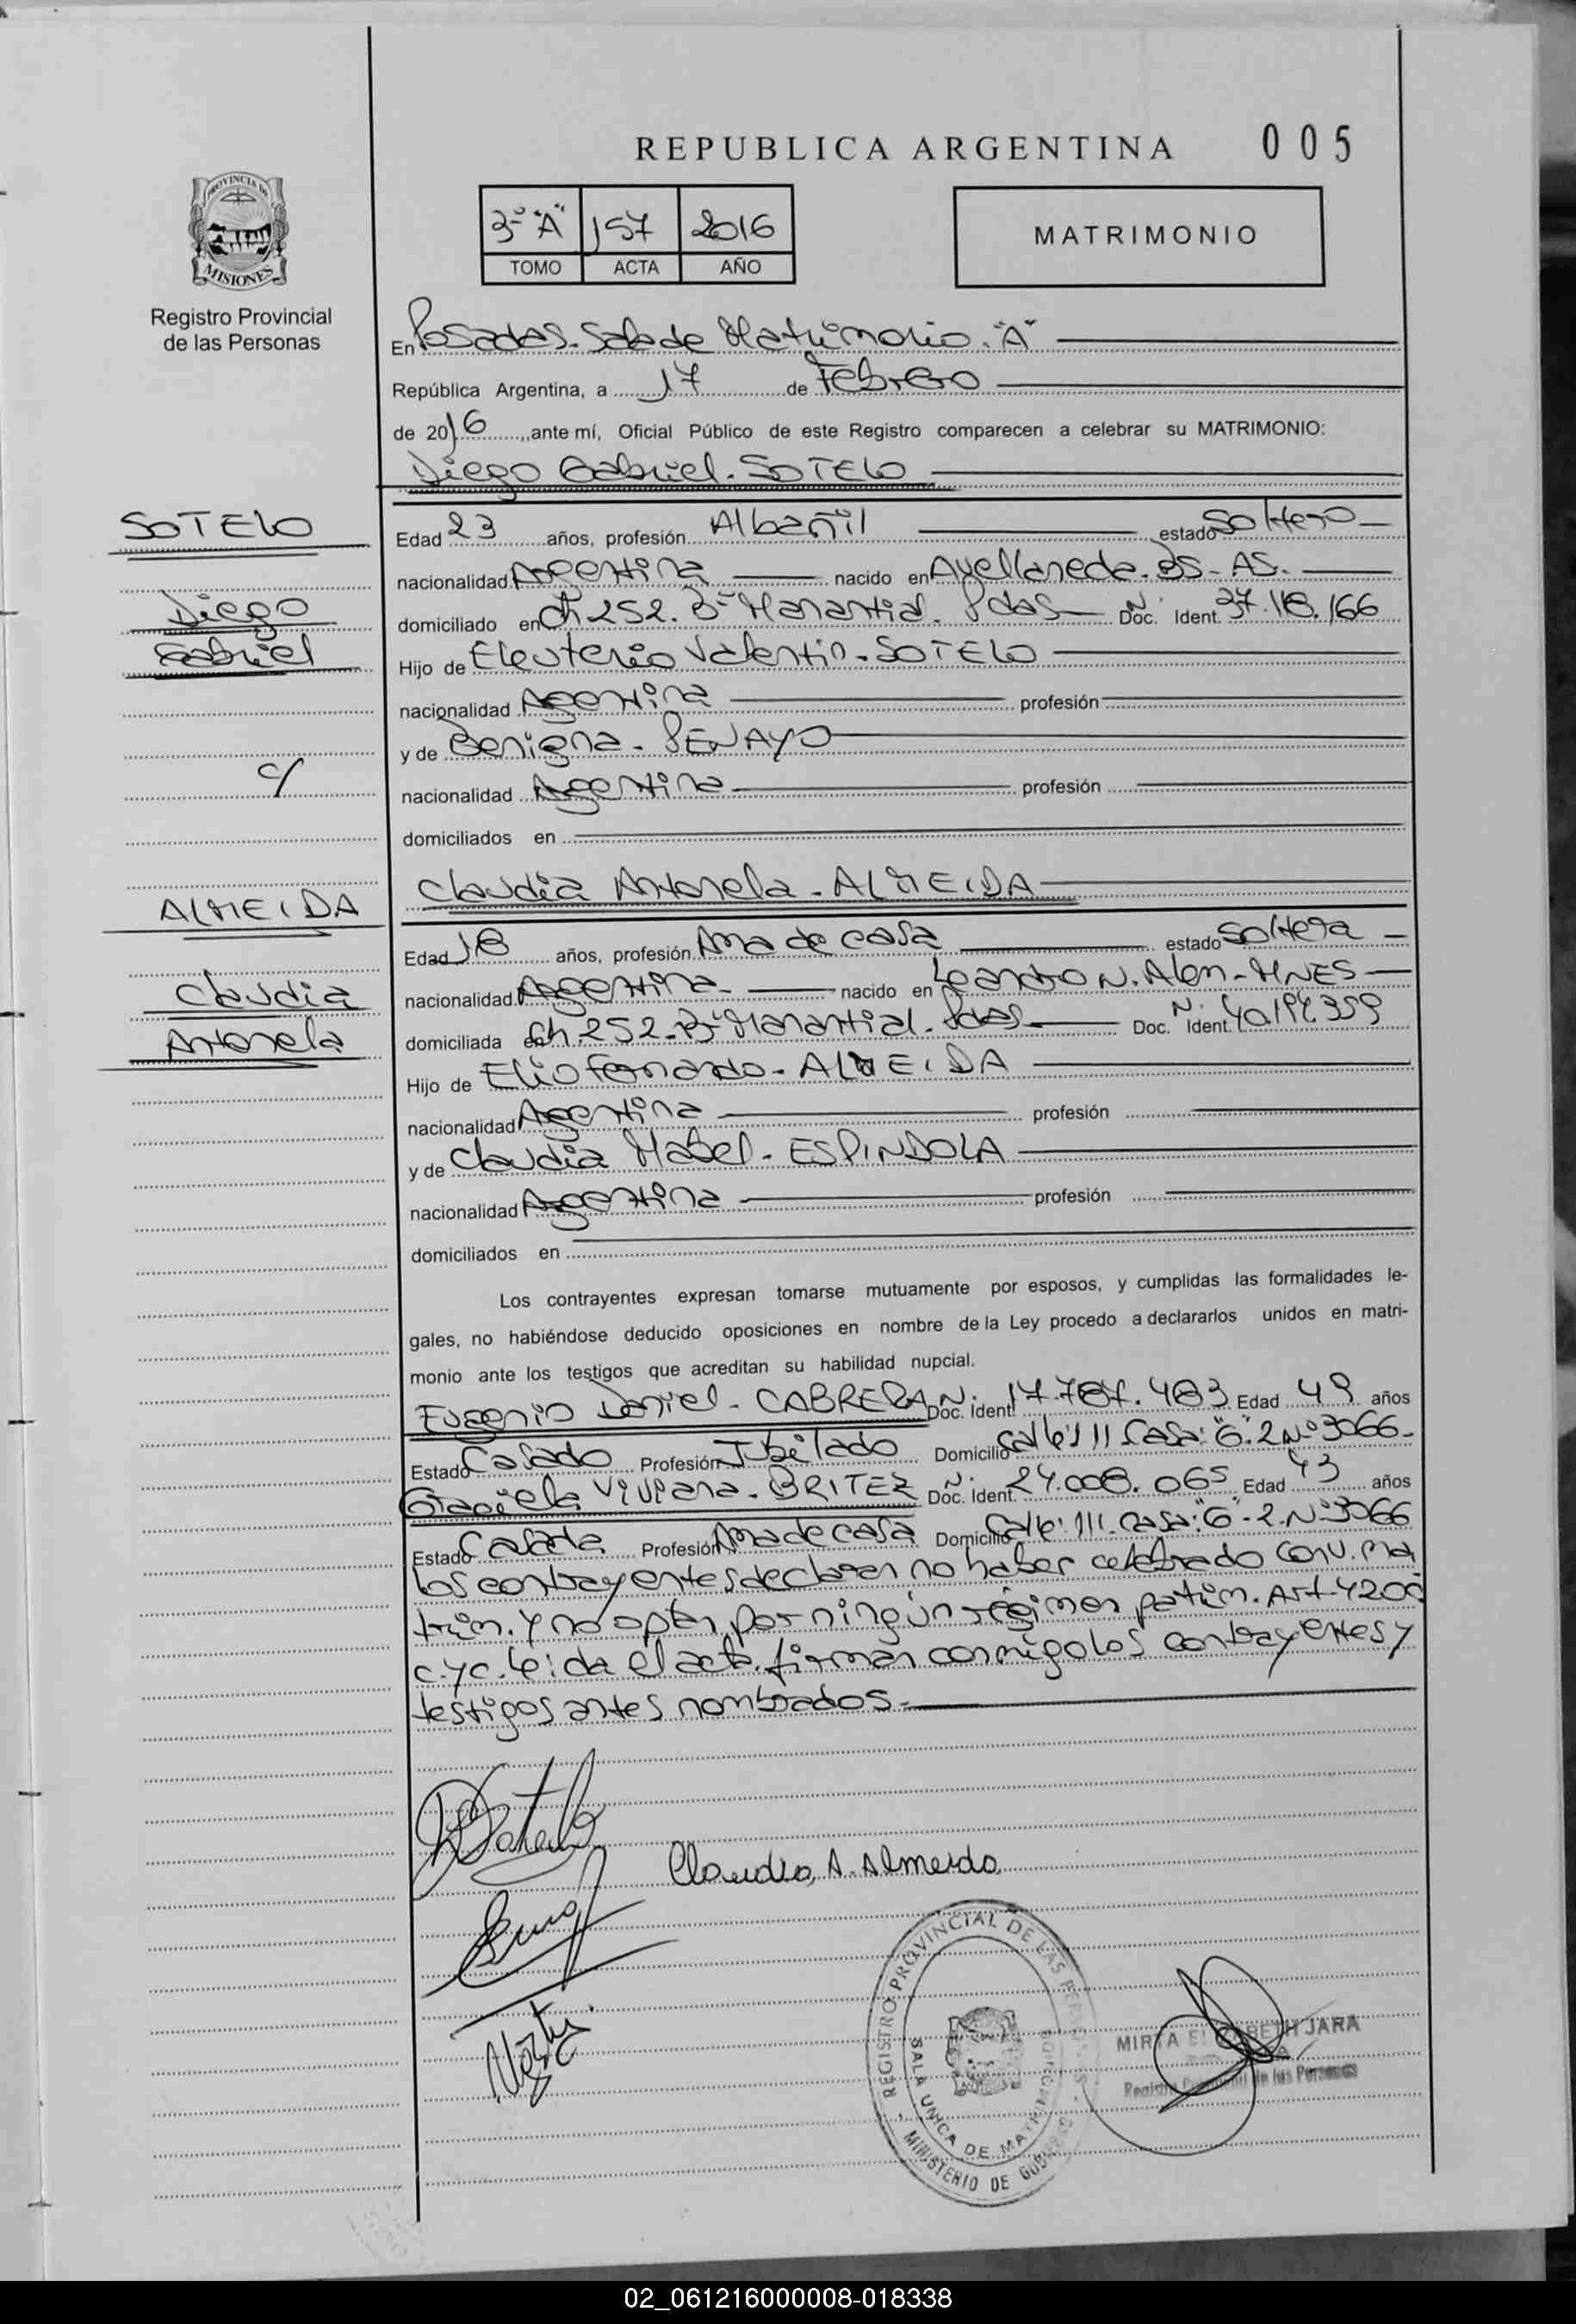 REPUBLICA ARGENTINA 005
PROVINCIA DE
MISIONES
Registro Provincial
de las Personas
3º "A" 157 2016
TOMO ACTA AÑO
MATRIMONIO
En Posadas. Sala de Matrimonio. "A"
República Argentina, a 17 de Febrero
de 2016, ante mí, Oficial Público de este Registro comparecen a celebrar su MATRIMONIO:
Diego Gabriel. SOTELO
SOTELO
Diego
Gabriel
c/
ALMEIDA
Claudia
Antonela
Edad 23 años, profesión Albañil estado Soltero
nacionalidad Argentina nacido en Avellaneda. BS-AS.
domiciliado en Ch 252. Bº Manantial. Pdas Doc. Ident. Nº 37.118.166
Hijo de Eleuterio Valentin. SOTELO
nacionalidad Argentina profesión
y de Benigna. PENAYO
nacionalidad Argentina profesión
domiciliados en
Claudia Antonela. ALMEIDA
Edad 18 años, profesión Ama de casa estado Soltera
nacionalidad Argentina nacido en Leandro N. Alem-MNES
domiciliada en Ch.252.Bº Manantial. Pdas Doc. Ident. Nº 40.194.359
Hijo de Elio Fernando. ALMEIDA
nacionalidad Argentina profesión
y de Claudia Mabel. ESPINDOLA
nacionalidad Argentina profesión
domiciliados en
Los contrayentes expresan tomarse mutuamente por esposos, y cumplidas las formalidades le-
gales, no habiéndose deducido oposiciones en nombre de la Ley procedo a declararlos unidos en matri-
monio ante los testigos que acreditan su habilidad nupcial.
Eugenio Daniel. CABRERA Doc. Ident. Nº 17.787.483 Edad 49 años
Estado Casado Profesión Jubilado Domicilio Calle 111 Casa: "6".2 Nº 3066
Graciela Viviana. BRITEZ Doc. Ident. Nº 24.008.065 Edad 43 años
Estado Casada Profesión Ama de casa Domicilio Calle 111. Casa: "6"-2. Nº 3066
Los contrayentes declaran no haber celebrado conv. ma
trim. y no optan por ningún régimen patrim. Art-420
c.yc. leida el acta, firman conmigo los contrayentes y
testigos antes nombrados.
Claudia, A. Almeida
REGISTRO PROVINCIAL DE LAS PERSONAS
SALA UNICA DE MATRIMONIO
MINISTERIO DE GOBIERNO
MIRTA ELIZABETH JARA
Registro Provincial de las Personas
02_061216000008-018338